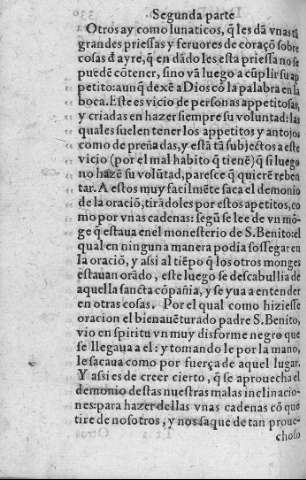 Segunda parte
Otros ay como lunaticos, q̃ les dã vnas tã
grandes priessas y feruores de coraçõ sobre
cosas d̃ ayre, q̃ en dãdo les esta priessa no se
puedẽ cõtener, sino vã luego a cũplir su ap
petito: aunq̃ dexẽ a Dios cõ la palabra en la
boca. Este es vicio de personas appetitosas
y criadas en hazer siempre su volũtad: las
quales suelen tener los appetitos y antojos
como de preñadas, y estã tã subjectos a este
vicio (por el mal habito q̃ tienẽ) q̃ si luego
no hazẽ su volũtad, paresce q̃ quierẽ reben
tar. A estos muy facilmẽte saca el demonio
de la oraciõ, tirãdoles por estos apetitos, co
mo por vnas cadenas: segũ se lee de vn mõ-
ge q̃ estaua enel monesterio de S. Benito: el
qual en ninguna manera podia sossegar en
la oraciõ, y assi al tiẽpo q̃ los otros monges
estauan orãdo, este luego se descabullia de
aquella sancta cõpañia, y se yua a entender
en otras cosas. Por el qual como hiziesse
oracion el bienauẽturado padre S. Benito,
vio en spiritu vn muy disforme negro que
se llegaua a el: y tomando le por la mano,
le sacaua como por fuerça de aquel lugar.
Y assi es de creer cierto, q̃ se aprouecha el
demonio destas nuestras malas inclinacio-
nes: para hazer dellas vnas cadenas cõ que
tire de nosotros, y nos saque de tan proue-
choso